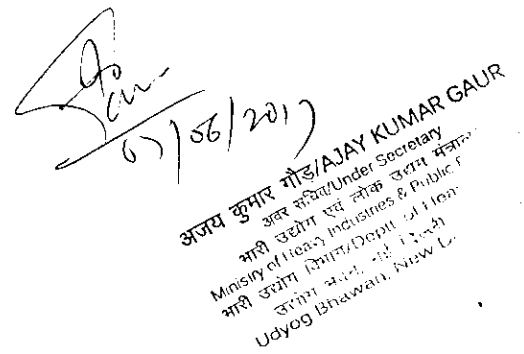 07/06/2017
अजय कुमार गौड़/AJAY KUMAR GAUR
अवर सचिव/Under Secretary
भारी उद्योग एवं लोक उद्यम
Ministry of Heavy Industries & Public
भारी उद्योग विभाग/Deptt. of
उद्योग भवन, नई
Udyog Bhawan, New